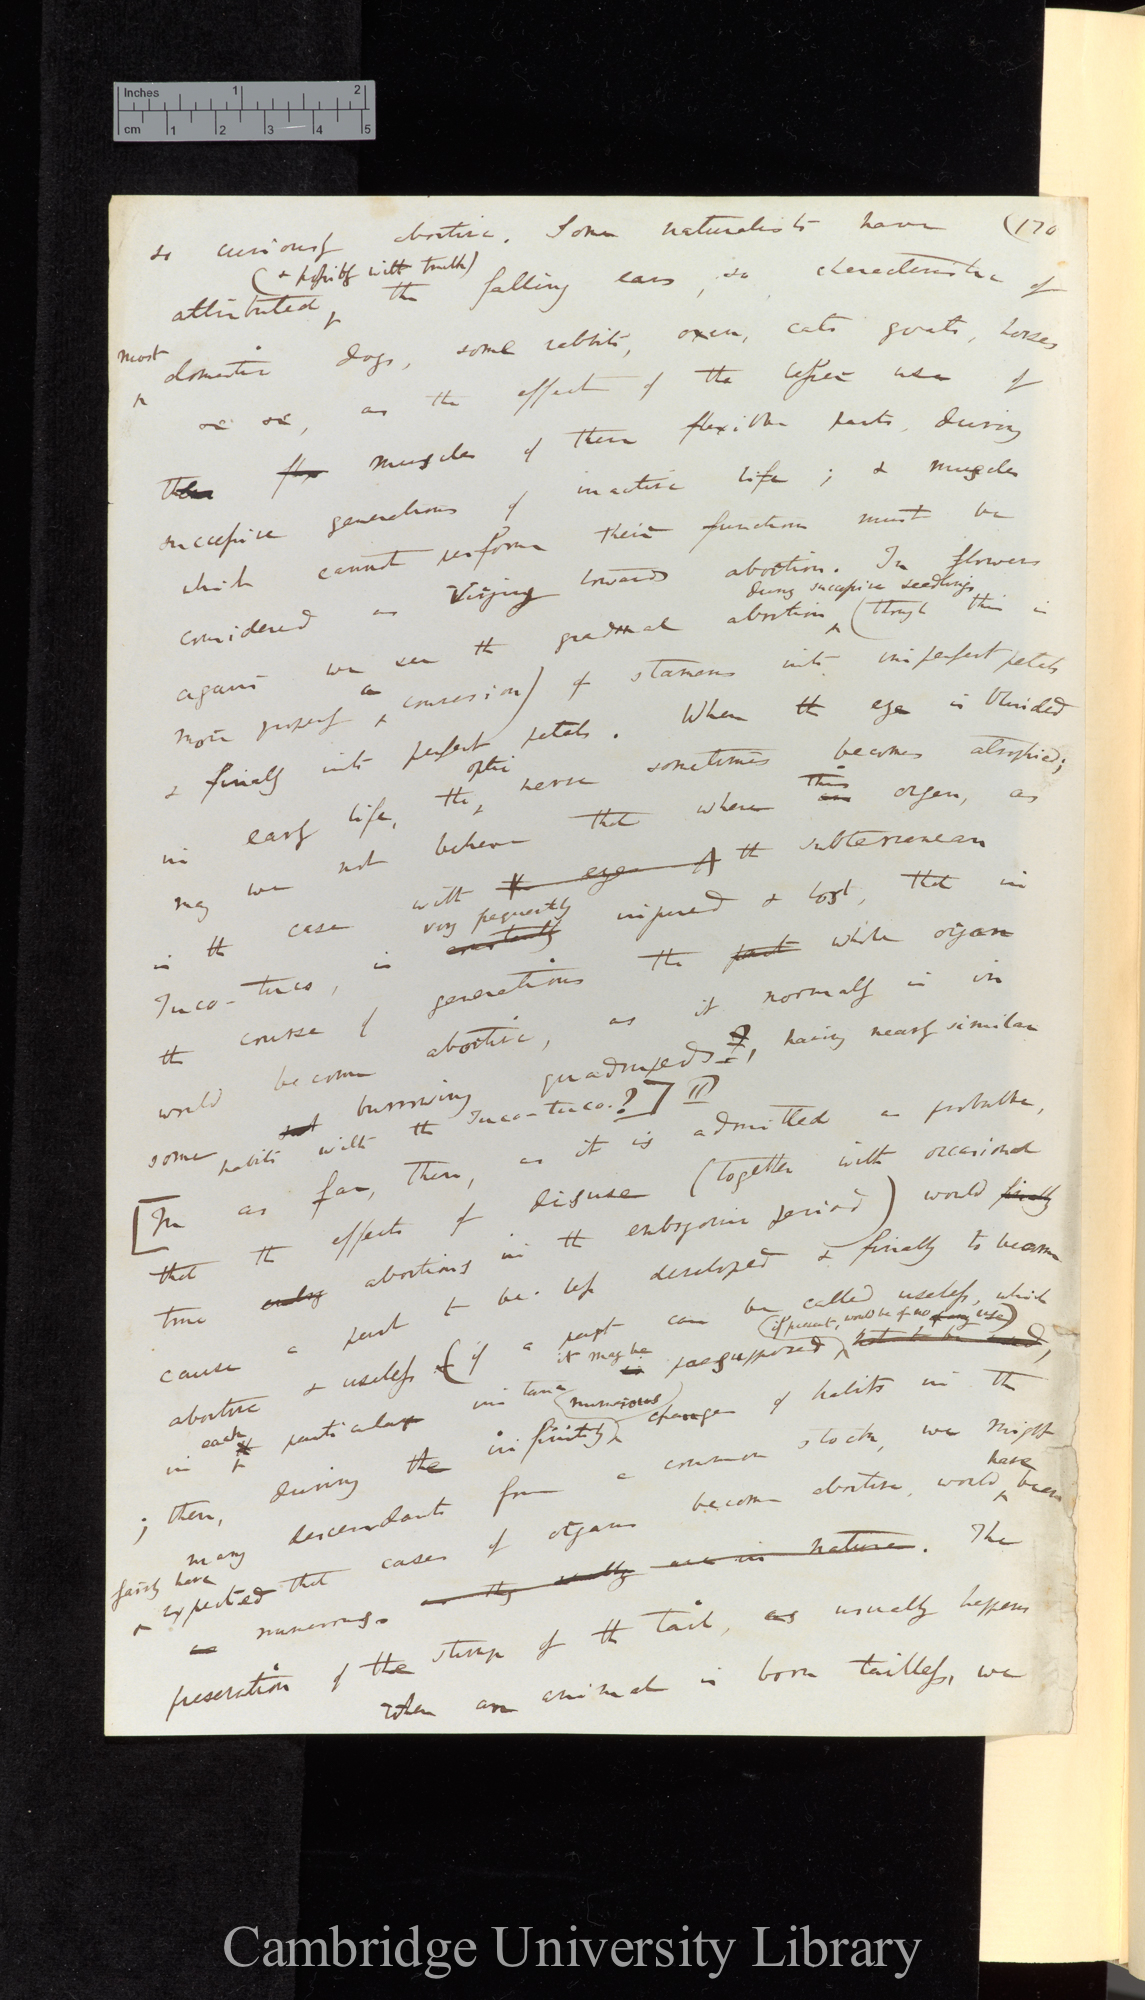 Inches 1 2
cm 1 2 3 4 5
(170
so curiously abortive. Some naturalists have
(& possibly with truth)
attributed the falling ears, so characteristic of
most domestic dogs, some rabbits, oxen, cats goats, horses
&c &c, as the effect of the lesser use of
the muscles of these flexible parts, during
successive generations of inactive life; & muscles
which cannot perform their functions must be
considered as verging towards abortion. In flowers
during successive seedlings
again we see the gradual abortion (though this is
more properly a conversion) of stamens into imperfect petals
& finally into perfect petals. When the eye is blinded
optic
in early life, the nerve sometimes becomes atrophied;
may we not believe that where this organ, as
in the case with the eye the subterranean
very frequently
Tuco-tuco, is constantly injured & lost, that in
the course of generations the part whole organ
would become abortive, as it normally is in
some burrowing quadrupeds?, having nearly similar
habits with the Tuco-tuco.?]
[In as far, then, as it is admitted as probable,
that the effects of disuse (together with occasional
true abortions in the embryonic period) would finally
cause a part to be less developed & finally to become
abortive & useless (if a part can be called useless, which
it may be (if present, would be of no use)
in each particular instance is presupposed not to be used,
(numerous)
; then, during the infinitely changes of habits in the
many descendants from a common stock, we might
fairly have have
expected that cases of organs become abortive, would been
numerous. as they really are in nature. The
preservation of the stump of the tail, as usually happens
when an animal is born tailless, we
Cambridge University Library